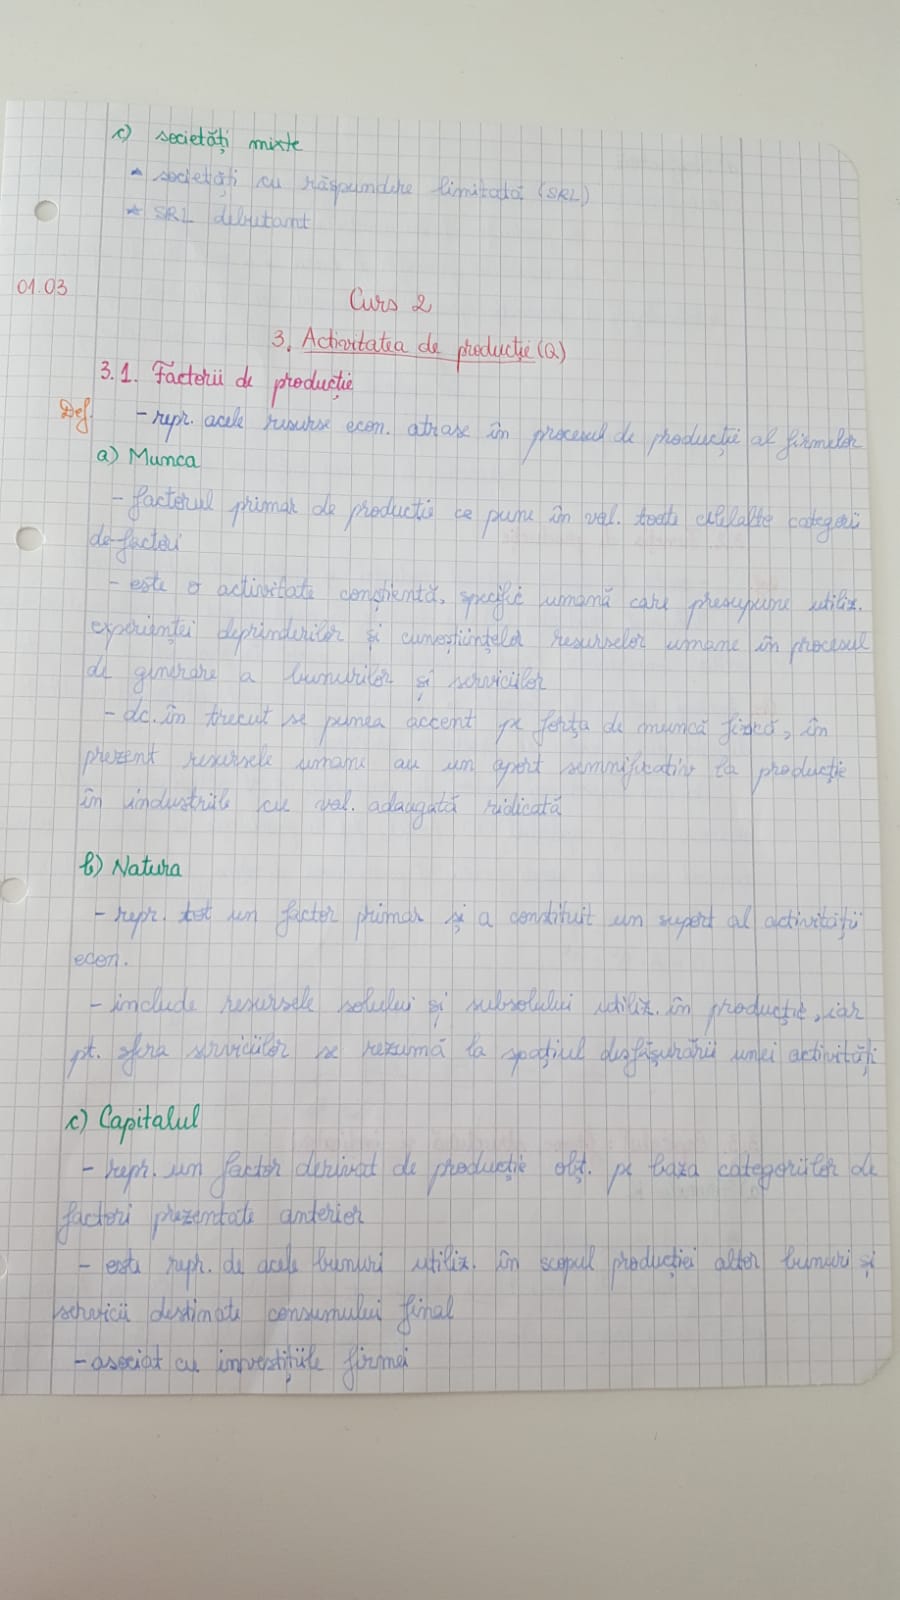 c) societăți mixte
▲ societăți cu răspundere limitată (SRL)
★ SRL debutant
01.03
Curs 2
3. Activitatea de producție (Q)
3.1. Factorii de producție
Def. - repr. acele resurse econ. atrase în procesul de producție al firmelor
a) Munca
- factorul primar de producție ce pune în val. toate celelalte categorii
de factori
- este o activitate conștientă, specific umană care presupune utiliz.
experienței deprinderilor și cunoștințelor resurselor umane în procesul
de generare a bunurilor și serviciilor
- dc. în trecut se punea accent pe forța de muncă fizică, în
prezent resursele umane au un aport semnificativ la producție
în industriile cu val. adăugată ridicată
b) Natura
- repr. tot un factor primar și a constituit un suport al activității
econ.
- include resursele solului și subsolului utiliz. în producție, iar
pt. sfera serviciilor se rezumă la spațiul desfășurării unei activități
c) Capitalul
- repr. un factor derivat de producție obț. pe baza categoriilor de
factori prezentate anterior
- este repr. de acele bunuri utiliz. în scopul producției altor bunuri și
servicii destinate consumului final
- asociat cu investițiile firmei